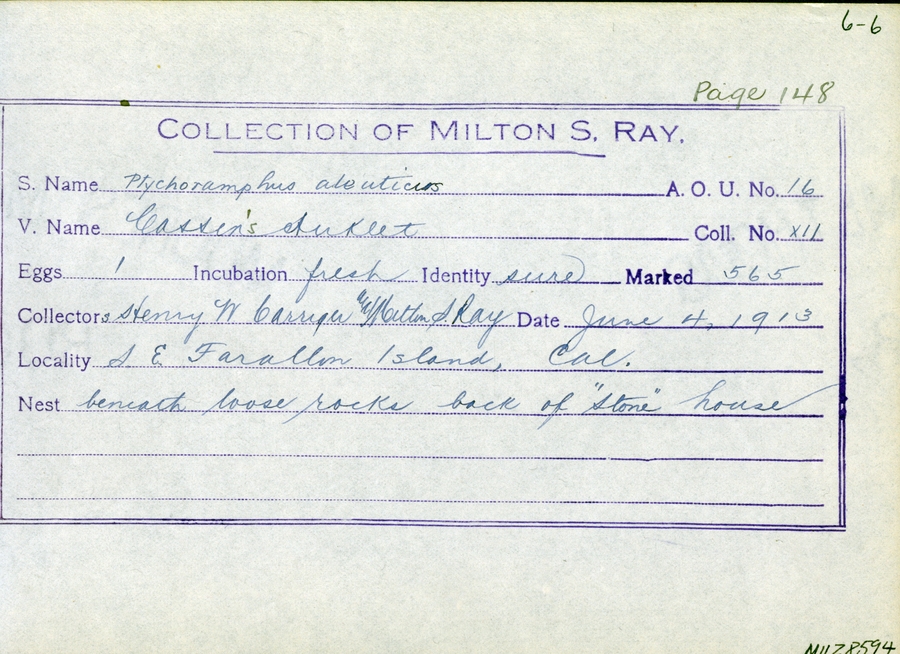 6-6
Page 148
COLLECTION OF MILTON S. RAY.
S. Name Ptychoramphus aleuticus A. O. U. No. 16
V. Name Cassin's Auklet Coll. No. XII
Eggs 1 Incubation fresh Identity sure Marked 565
Collectors Henry W Carriger Milton S Ray Date June 4, 1913
Locality S E Farallon Island, Cal.
Nest beneath loose rocks back of "Stone" house
MVZ8594